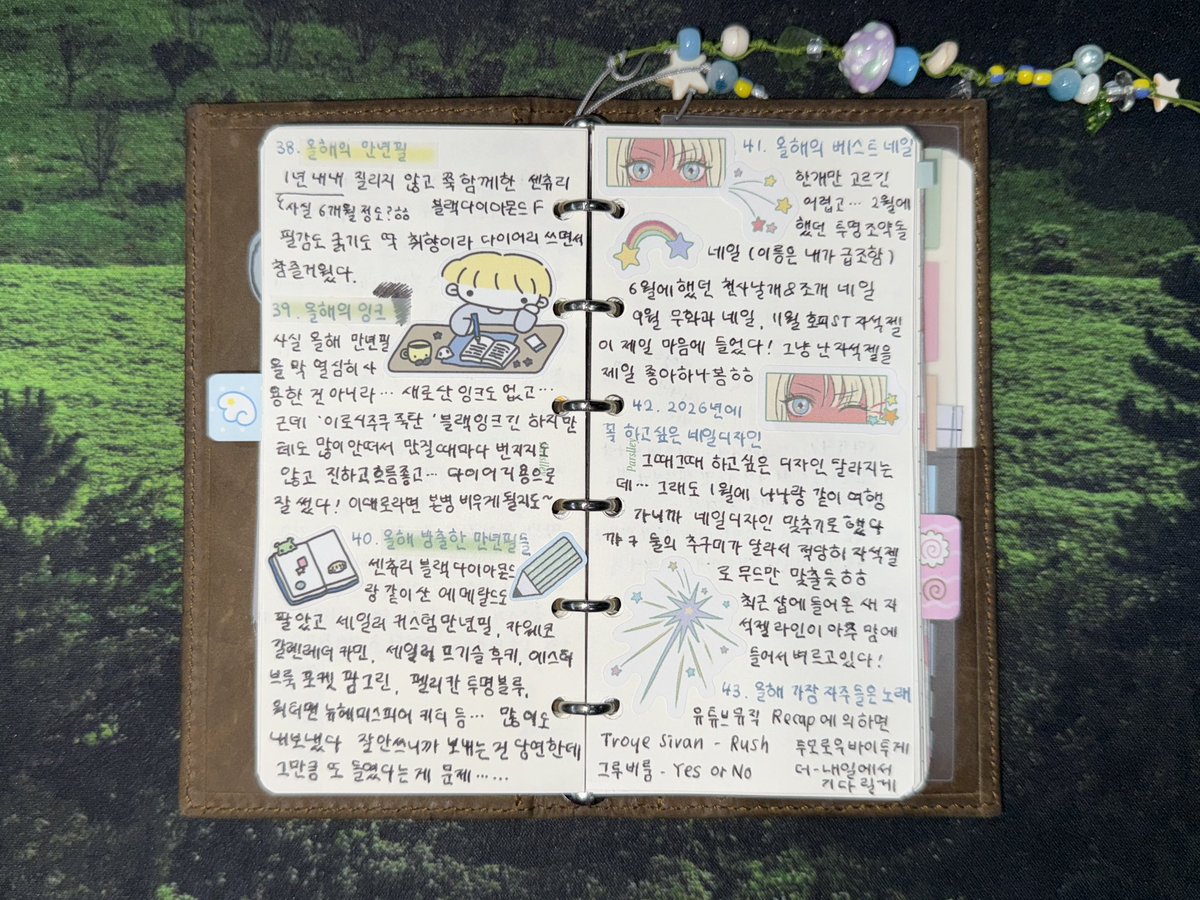 38. 올해의 만년필
1년 내내 질리지 않고 쭉 함께한 센츄리
(사실 6개월 정도?ㅎㅎ 블랙다이아몬드 F
필감도 굵기도 딱 취향이라 다이어리 쓰면서
참 즐거웠다.
39. 올해의 잉크
사실 올해 만년필
을 막 열심히 사
용한 건 아니라… 새로 산 잉크도 없고…
근데 '이로시주쿠 죽탄' 블랙잉크긴 하지만
테도 많이 안떠서 만질때마다 번지지도
않고 진하고 흐름좋고… 다이어리용으로
잘 썼다! 이대로라면 본병 비우게 될지도~
40. 올해 방출한 만년필들
센츄리 블랙다이아몬드
랑 같이 산 에메랄드도
팔았고 세일러 커스텀 만년필, 카웨코
갈렌레더 카민, 세일러 프기슬 후키, 에스터
브룩 포켓 팜그린, 펠리칸 투명블루,
워터맨 뉴헤미스피어 키터 등… 많이도
내보냈다 잘 안쓰니까 보내는 건 당연한데
그만큼 또 들였다는 게 문제……
41. 올해의 베스트 네일
한개만 고르긴
어렵고… 2월에
했던 투명조약돌
네일 (이름은 내가 급조함)
6월에 했던 천사날개&조개 네일
9월 무화과 네일, 11월 호피ST 자석젤
이 제일 마음에 들었다! 그냥 난 자석젤을
제일 좋아하나봄ㅎㅎ
42. 2026년에
꼭 하고싶은 네일디자인
그때그때 하고싶은 디자인 달라지는
데… 그래도 1월에 나나랑 같이 여행
가니까 네일디자인 맞추기로 했다
꺄ㅋ 둘의 추구미가 달라서 적당히 자석젤
로 무드만 맞출듯ㅎㅎ
최근 샵에 들어온 새 자
석젤 라인이 아주 맘에
들어서 벼르고있다!
43. 올해 가장 자주 들은 노래
유튜브뮤직 Recap에 의하면
Troye Sivan - Rush
그루비룸 - Yes or No
투모로우바이투게
더 - 내일에서
기다릴게
Parslley